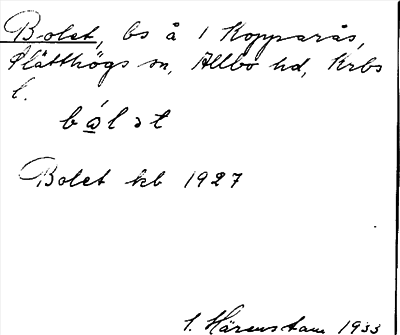 Bolet, bs å 1 Kopparås,
Slätthögs sn, Allbo hd, Krbs
l.
bólət
Bolet kb 1927
S. Härenstam 1933